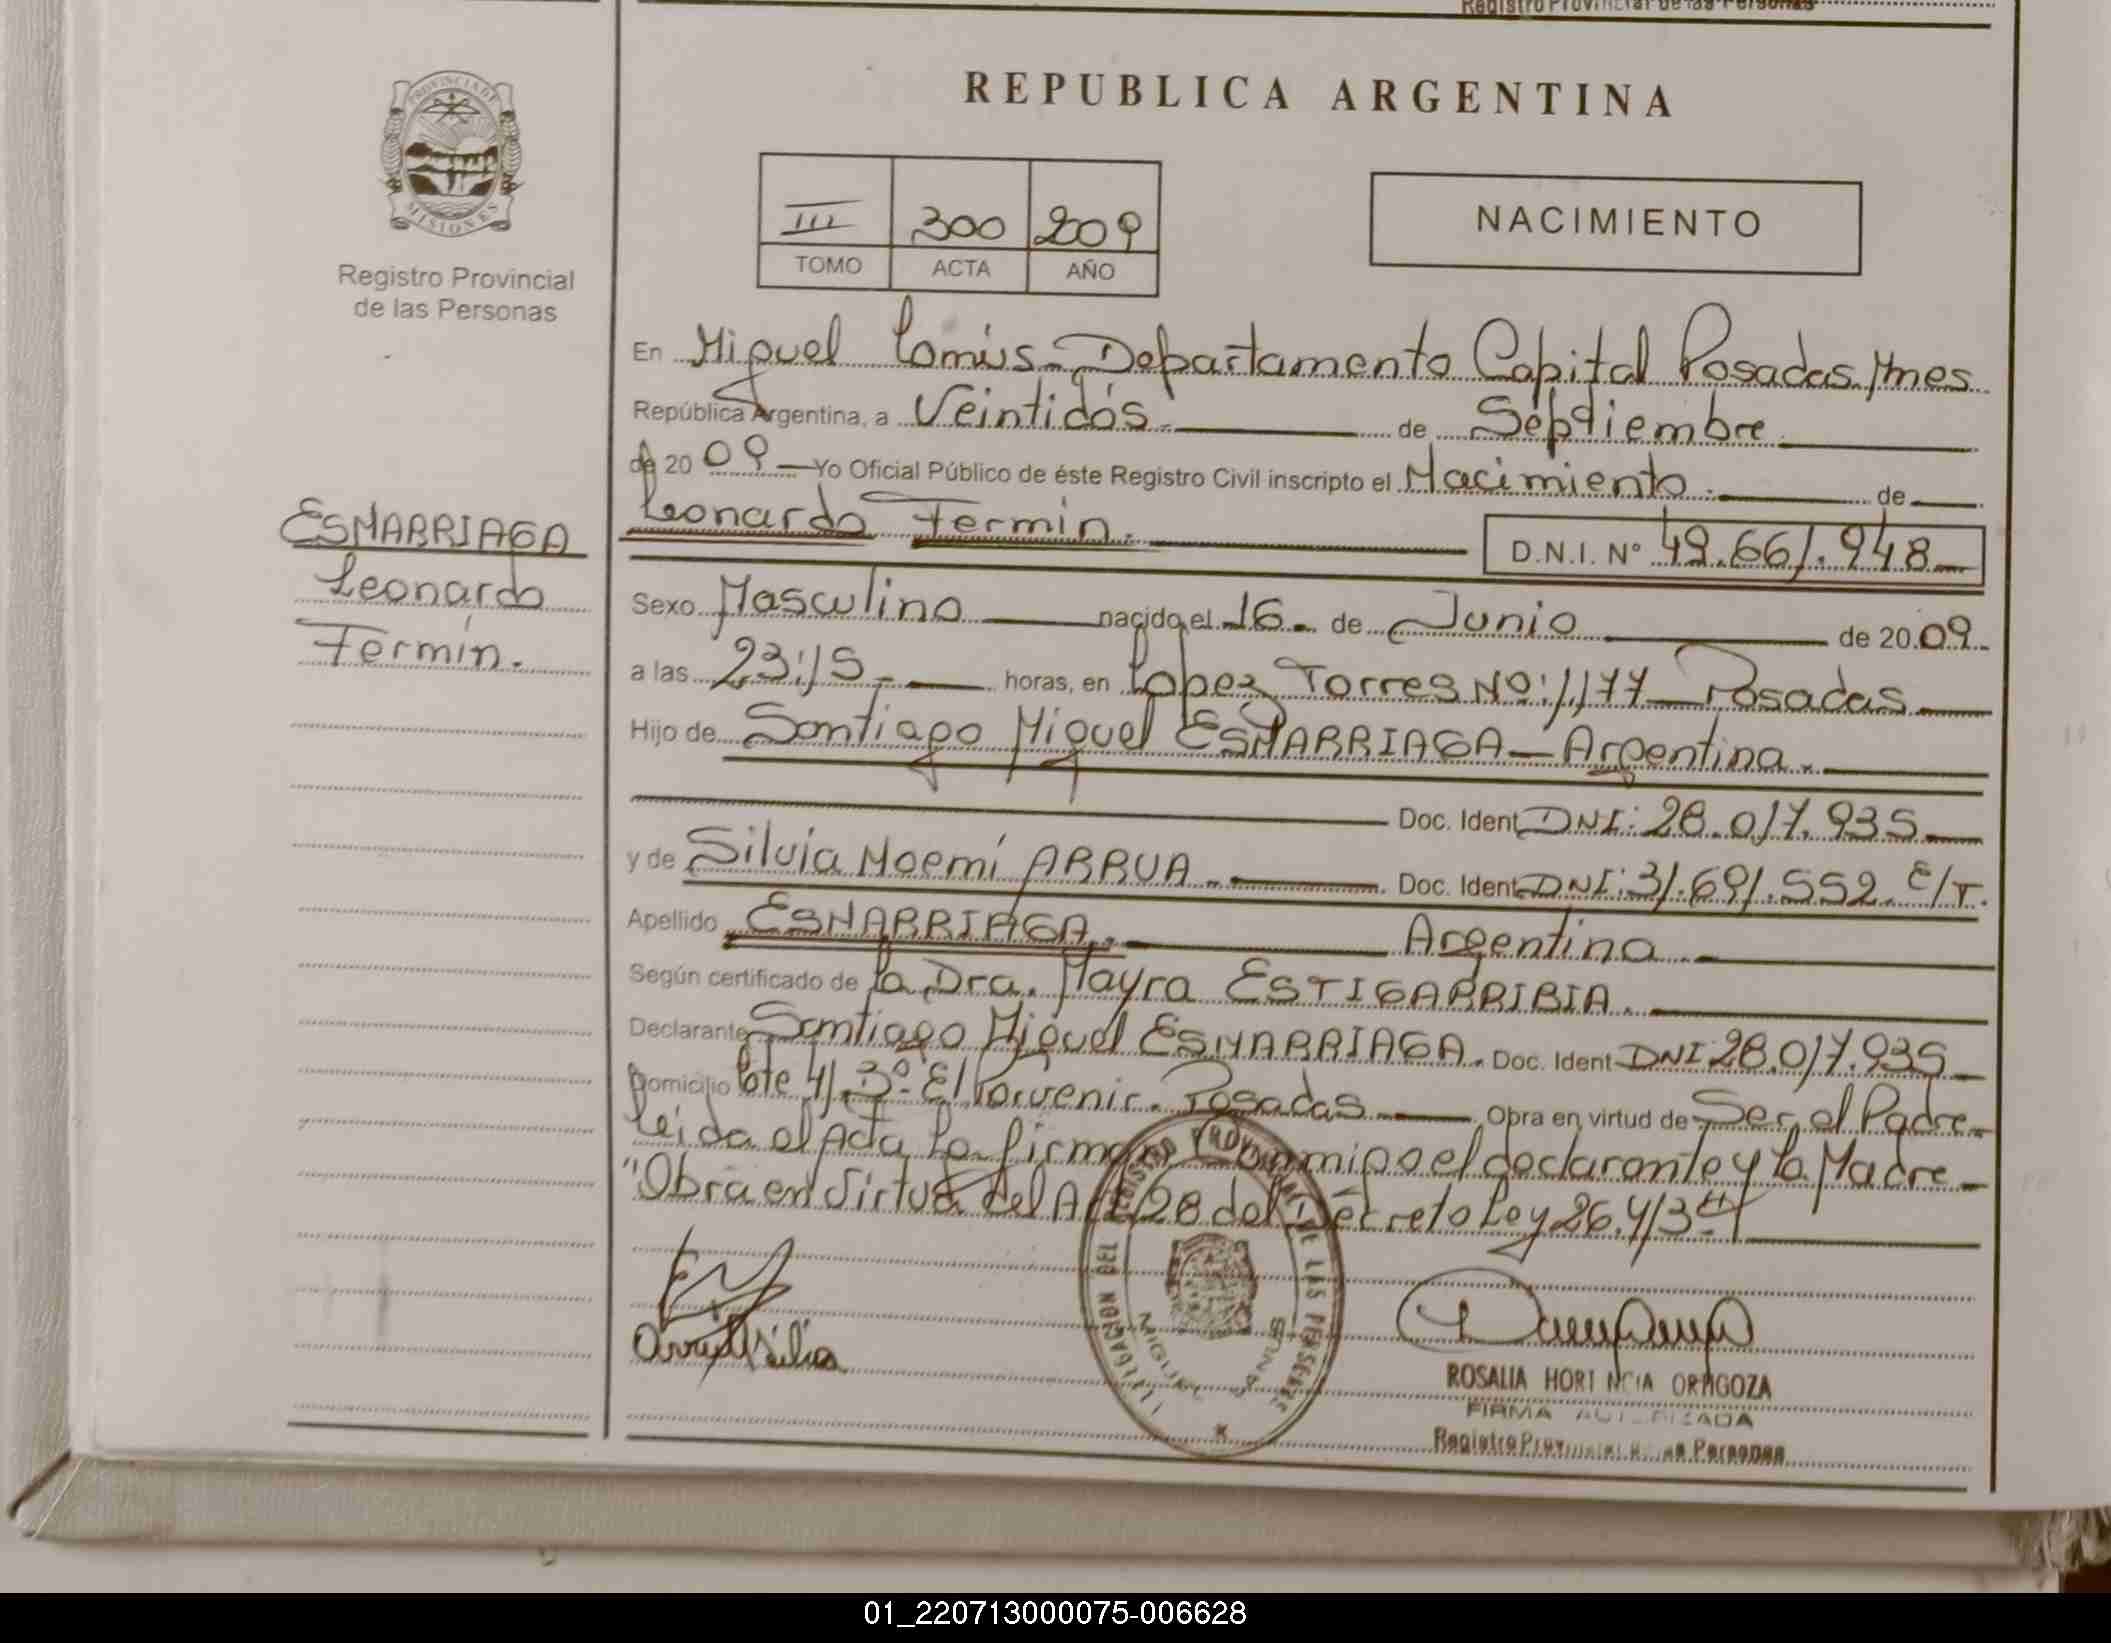 Registro Provincial de las Personas
PROVINCIA DE
MISIONES
Registro Provincial
de las Personas
REPUBLICA ARGENTINA
III 300 2009
TOMO ACTA AÑO
NACIMIENTO
En Miguel Lanús - Departamento Capital Posadas Mnes
República Argentina, a Veintidós.- de Septiembre
de 20 09 - Yo Oficial Público de éste Registro Civil inscripto el Nacimiento.- de
Leonardo Fermín.
D.N.I. Nº 49.661.948
ESNARRIAGA
Leonardo
Fermín.
Sexo Masculino nacido el 16 - de Junio de 20 09.
a las 23:15 - horas, en López Torres Nº: 1.177 - Posadas
Hijo de Santiago Miguel ESNARRIAGA - Argentina.
Doc. Ident DNI: 28.017.935
y de Silvia Noemí ARRUA.- Doc. Ident DNI: 31.691.552. E/T.
Apellido ESNARRIAGA. Argentina.
Según certificado de la Dra. Mayra ESTIGARRIBIA.
Declarante Santiago Miguel ESNARRIAGA. Doc. Ident DNI 28.017.935
Domicilio lote 41 3º El Porvenir - Posadas Obra en virtud de Ser el Padre
Leida el Acta la firman conmigo el declarante y la Madre
"Obra en Virtud del Art 28 del Decreto Ley 26.413"
REGISTRO PROVINCIAL DE LAS PERSONAS
DELEGACION
MIGUEL LANUS
ROSALIA HORTENCIA ORAGOZA
FIRMA AUTORIZADA
Registro Provincial de las Personas
01_220713000075-006628